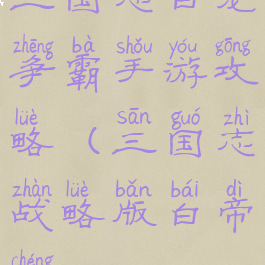 三国志白龙
zhēng bà shǒu yóu gōng
争霸手游攻
lüè sān guó zhì
略(三国志
zhàn lüè bǎn bái dì
战略版白帝
chéng